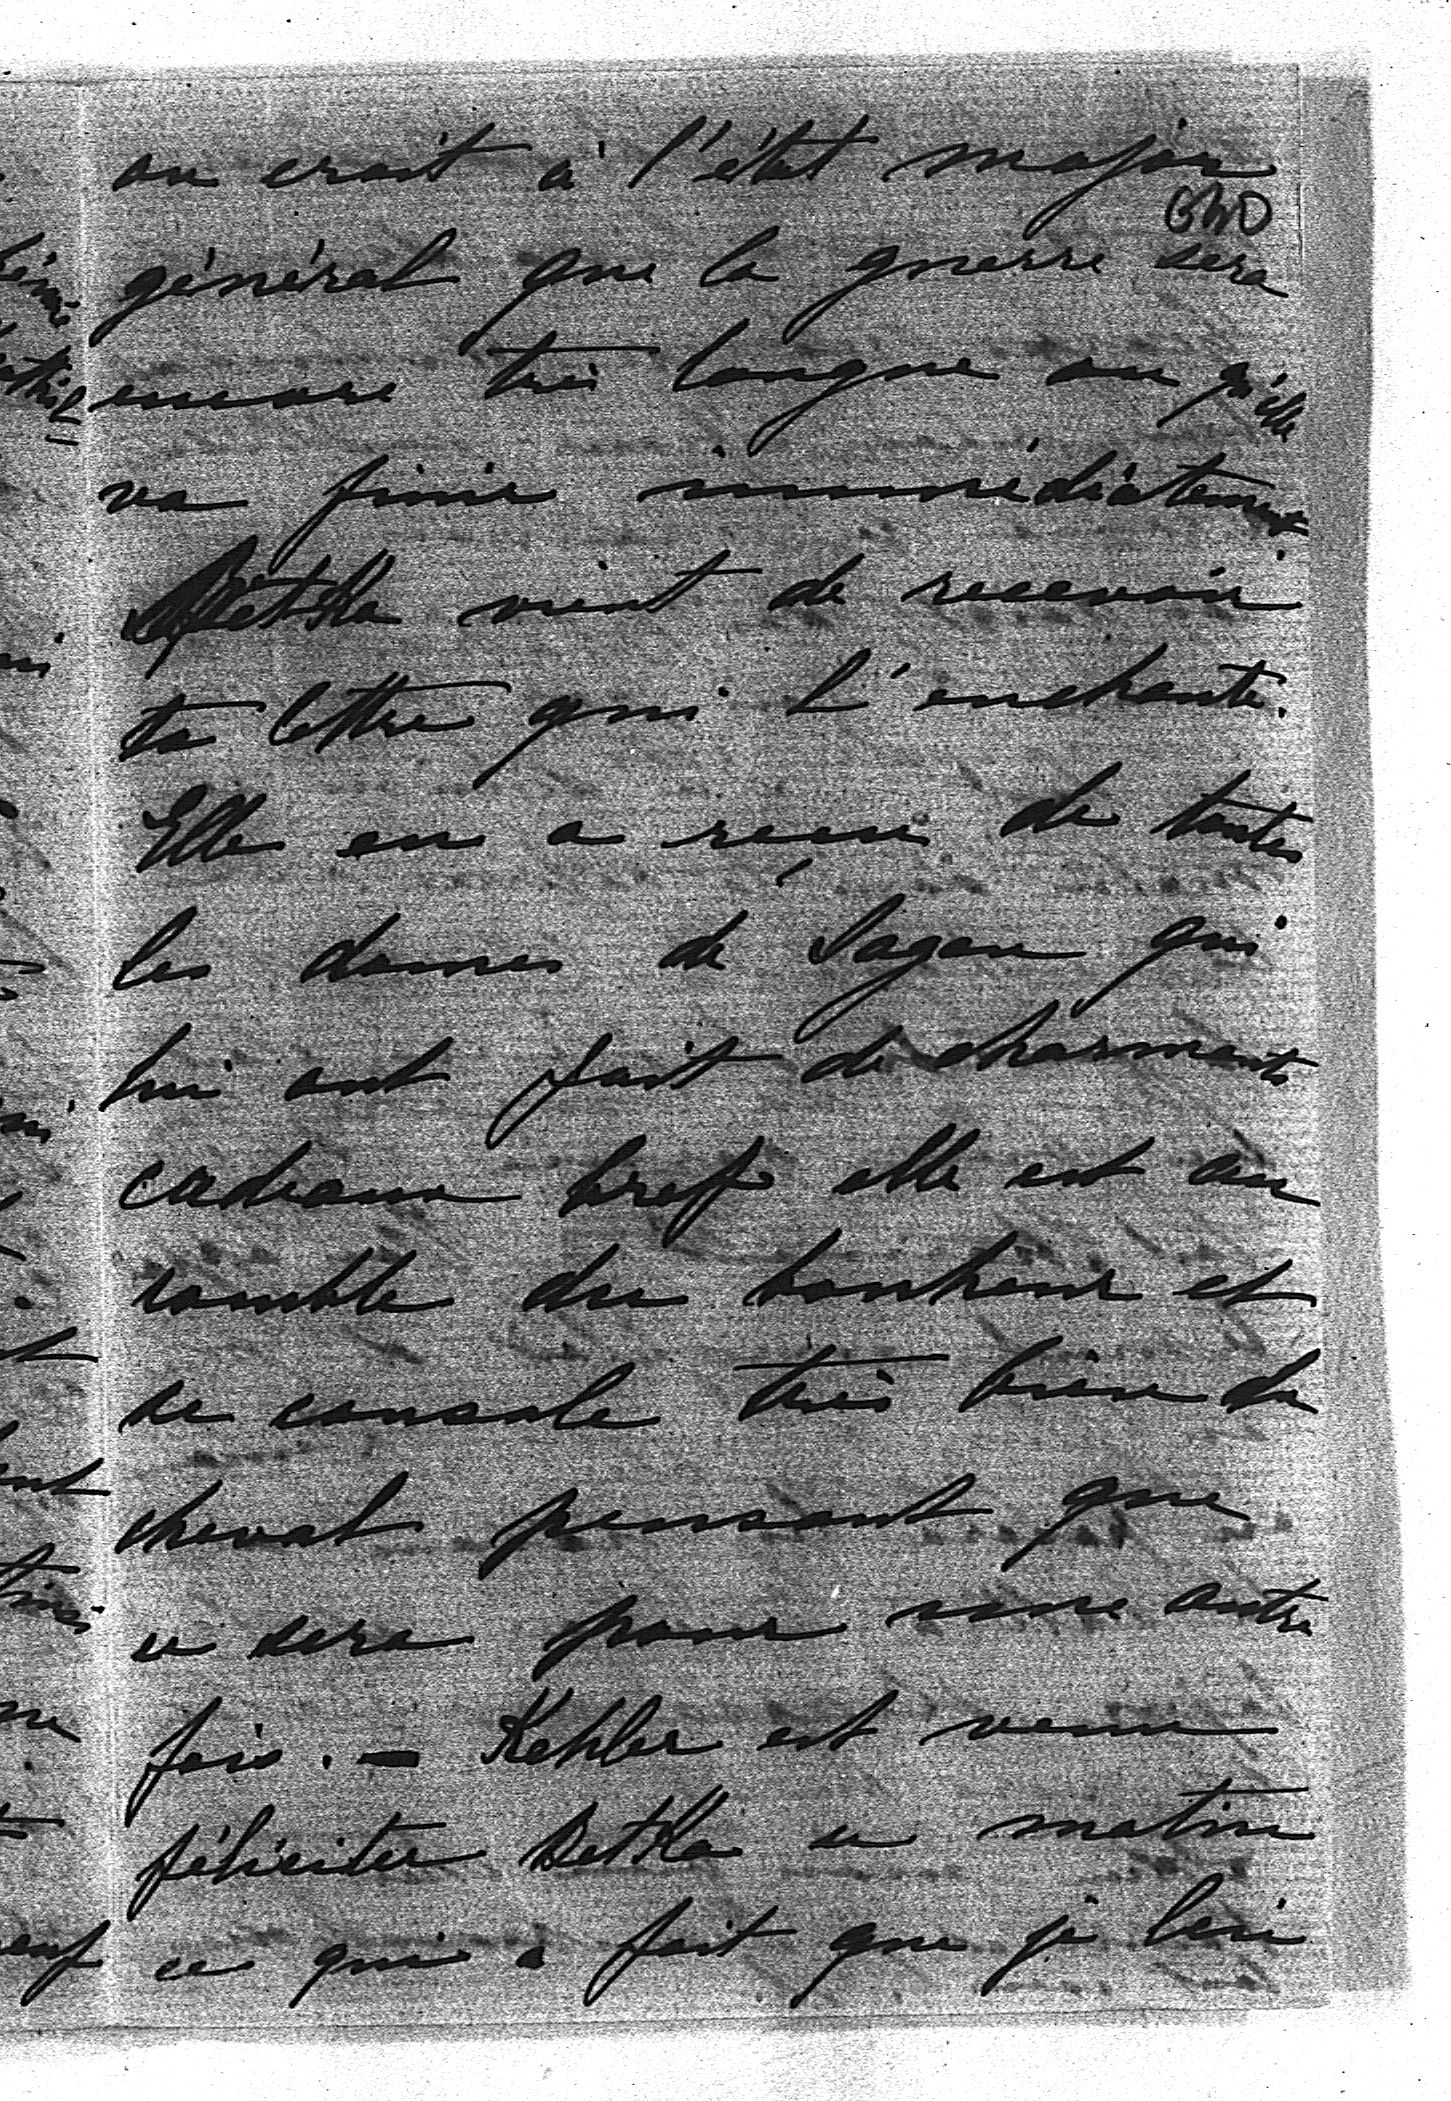 on croit à l'état major
général que la guerre sera
encore très longue ou qu'elle
va finir immédiatement
Betka vient de recevoir
ta lettre qui l'enchante.
Elle en a reçu de toutes
les dames de Sagan qui
lui ont fait de charmants
cadeaux bref elle est au
comble du bonheur et
se console très bien du
cheval pensant que
ce sera pour une autre
fois. — Kehler est venu
féliciter Betka ce matin
ce qui a fait que je lui